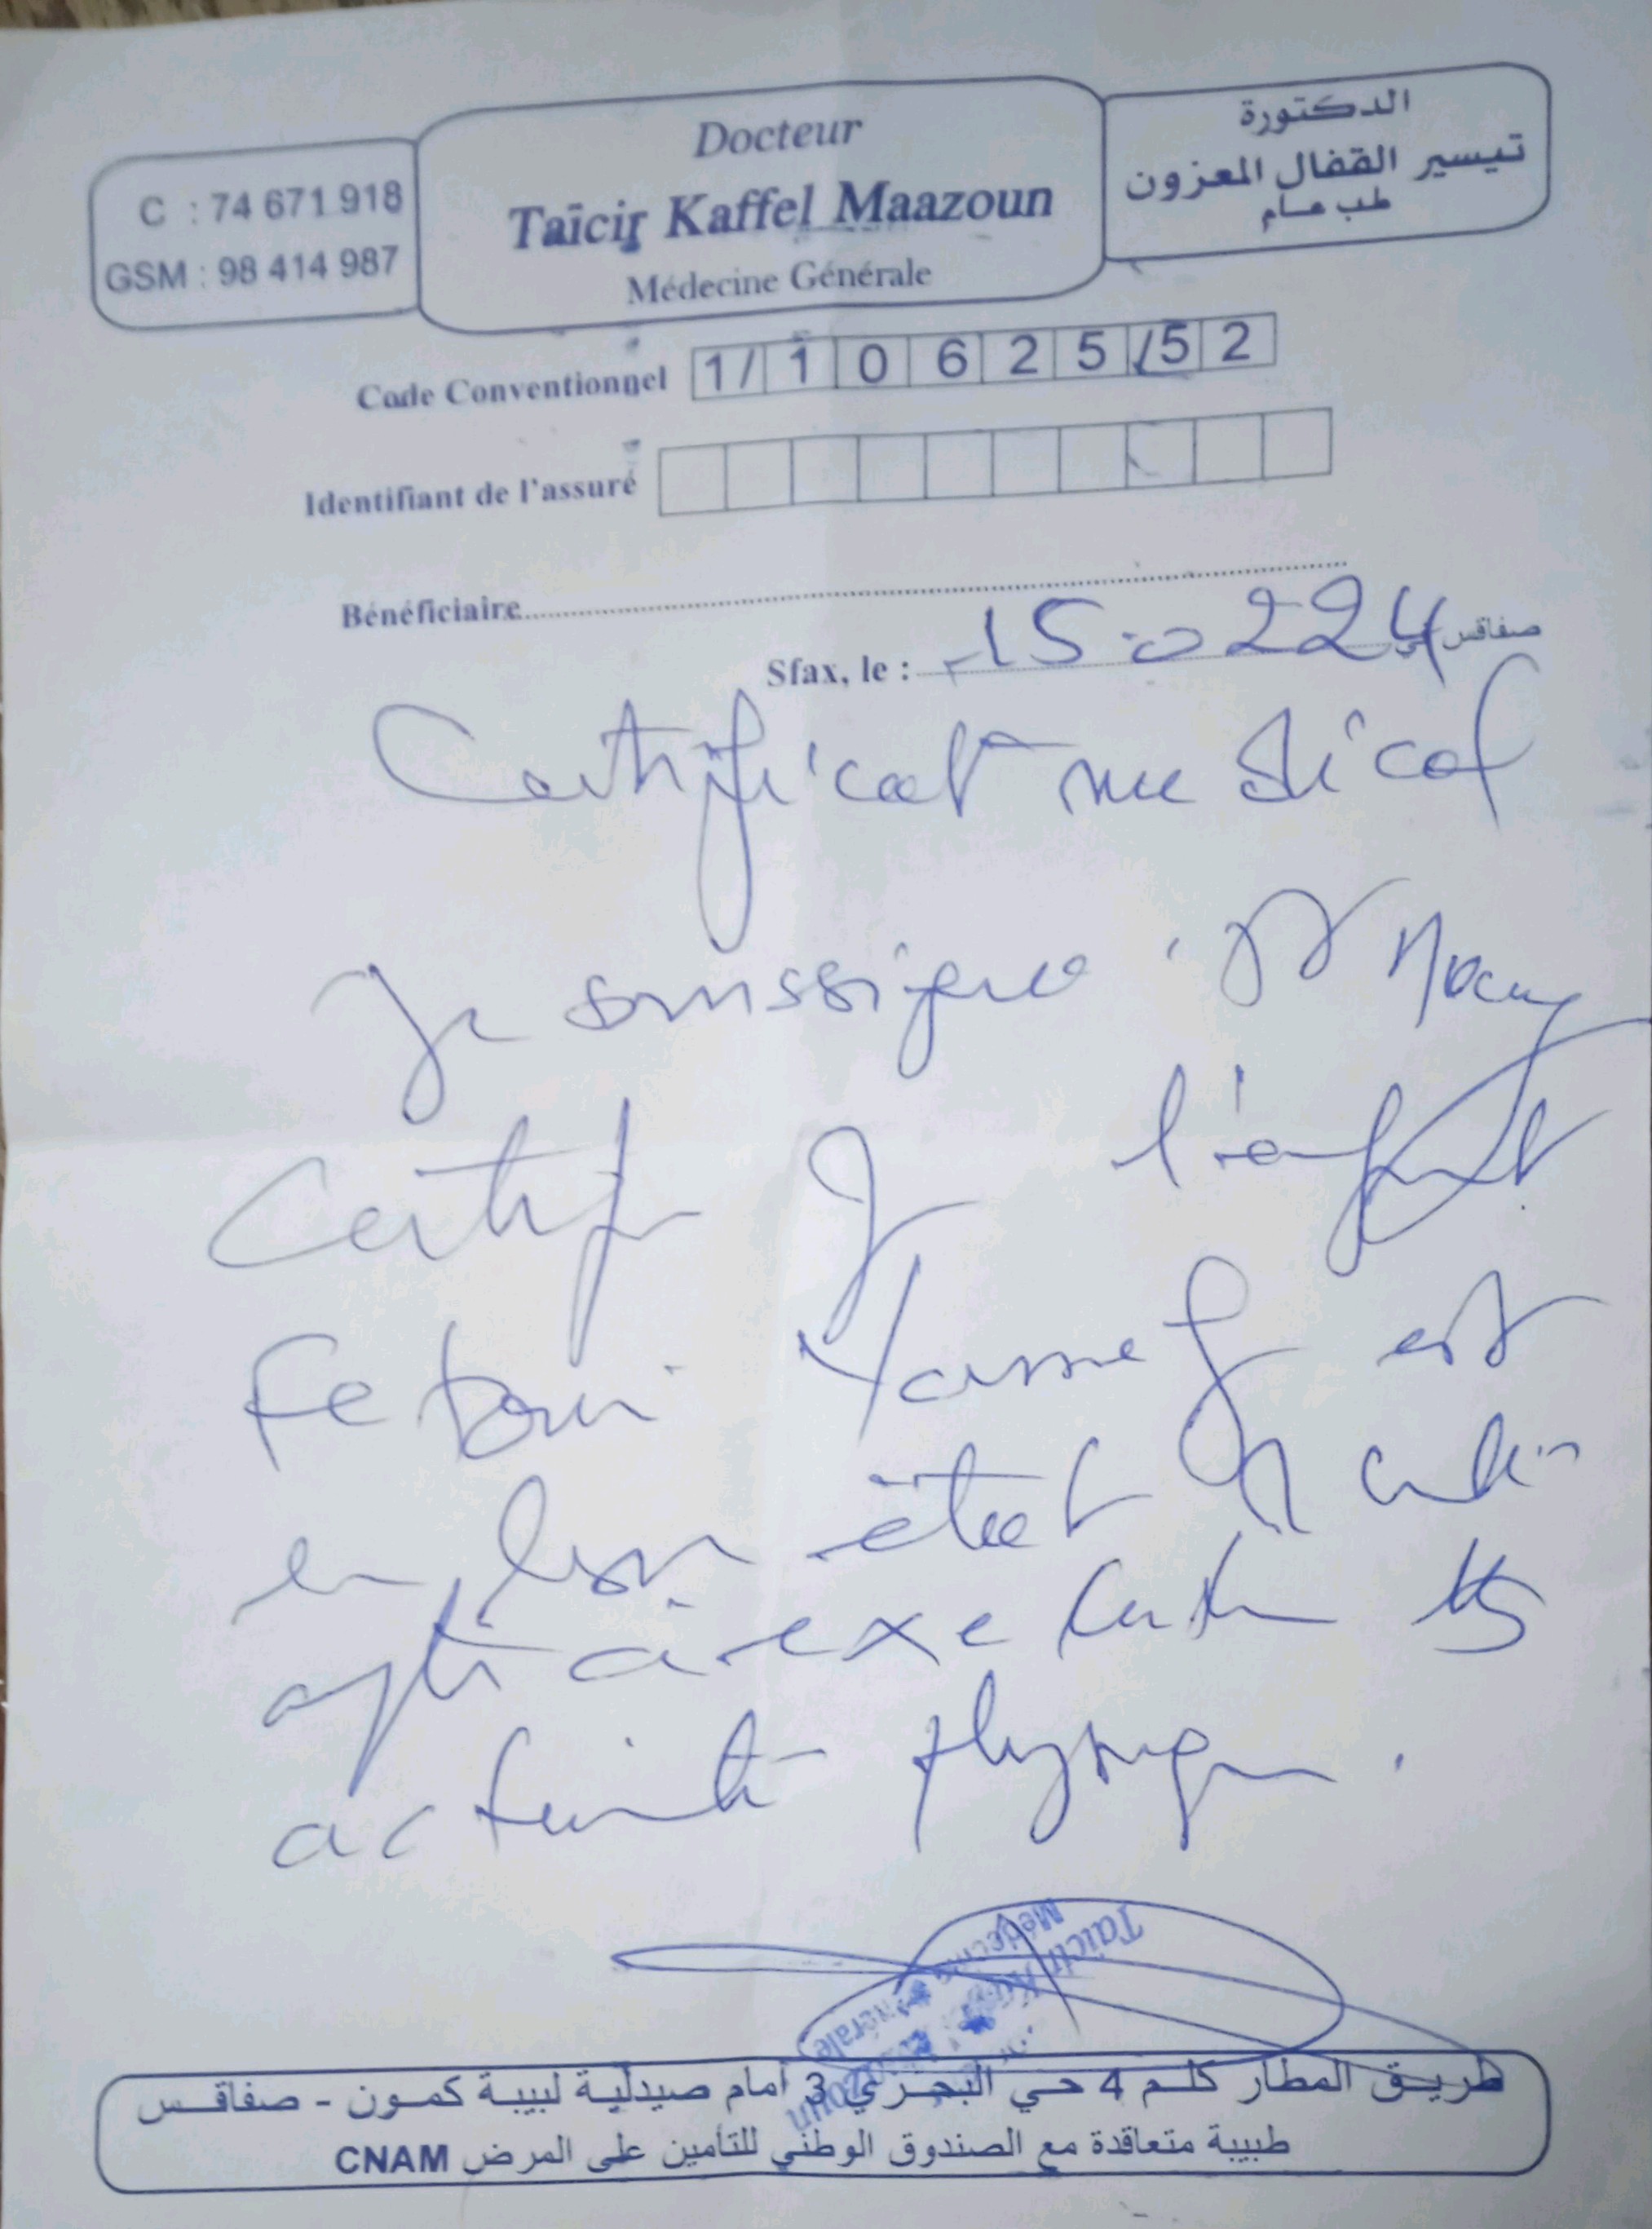 Docteur
Taïcir Kaffel Maazoun
Médecine Générale
C : 74 671 918
GSM : 98 414 987
الدكتورة
تيسير القفال المعزون
طب عام
Code Conventionnel 1/ 1 0 6 2 5 /5 2
Identifiant de l'assuré
Bénéficiaire
Sfax, le : 15 224 صفاقس في
Certificat medical
Je soussigné Dr
Certifie que l'enfant
Fetoui Yousef est
en bon état
apte à executer les
activité physique.
Taïcir Kaffel Maazoun
Medecine Générale
طريق المطار كلم 4 حي البحري 3 أمام صيدلية لبيبة كمون - صفاقس
طبيبة متعاقدة مع الصندوق الوطني للتأمين على المرض CNAM